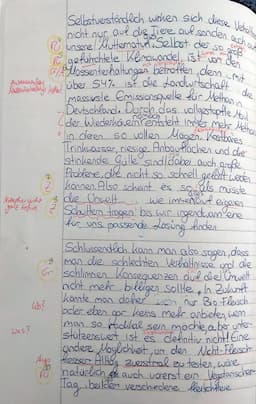 Selbstverständlich wirken sich diese
nicht nur auf die Tiere auf sondern auch auf
unsere Mutternatur. Selbst der so oft
gefürchtete Klimawandel ist von den
Massentierhaltungen betroffen, denn mit
über 54% ist die Landwirtschaft die
massivste Emissionsquelle für Methan in
Deutschland. Durch das vollgestopfte Maul
der Wiederkäuer entsteht immer mehr Methan
in deren so vollen Magen. Kostbares
Trinkwasser, riesige Anbauflächen und die
stinkende Gülle sind dabei auch große
Probleme, die nicht so schnell gelöst werden
können. Also scheint es so als müsste
die Umwelt wie immer auf eigenen
Schultern tragen bis wir irgendwann eine
für uns passende Lösung finden.
Schlussendlich kann man also sagen, dass
man die schlechten Verhältnisse und die
schlimmen Konsequenzen auf die Umwelt
nicht mehr billigen sollte. In Zukunft
könnte man daher nur Bio Fleisch
oder eben gar keins mehr anbieten, wenn
man so radikal sein möchte, aber unter-
stützenswert ist es definitiv nicht! Eine
andere Möglichkeit, um den Nicht-Fleisch-
esser Alltag zu testen, wäre
natürlich auch vorerst ein Vegetarischer
Tag, bei der verschiedene
Gr
Wo?
Was?